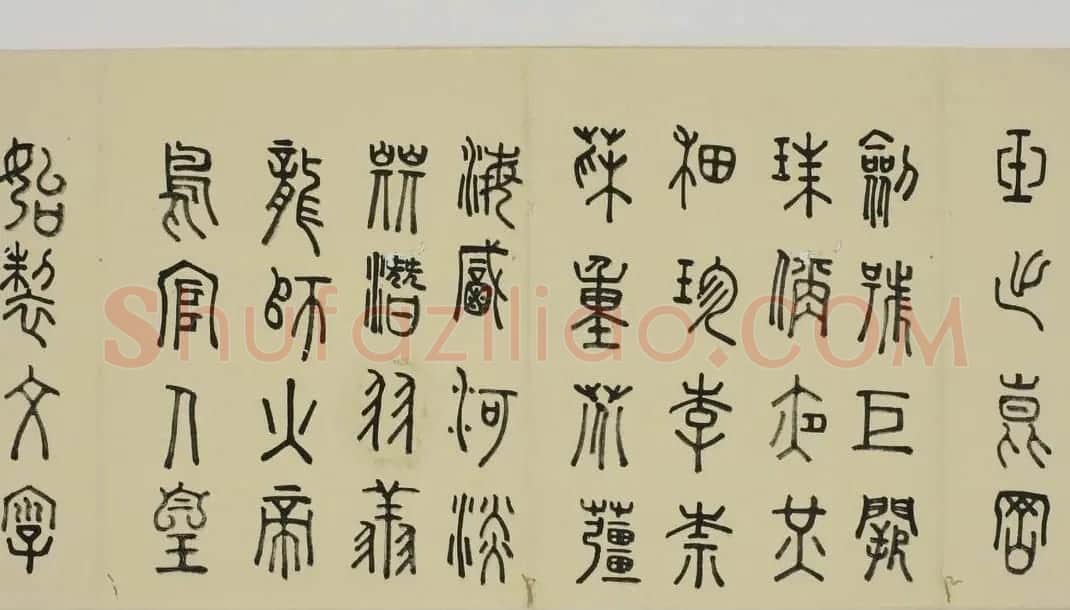 玉出崑岡
劍號巨闕
珠稱夜光
果珍李柰
菜重芥薑
海鹹河淡
鱗潛羽翔
龍師火帝
鳥官人皇
始製文字
Shufaziliao.COM